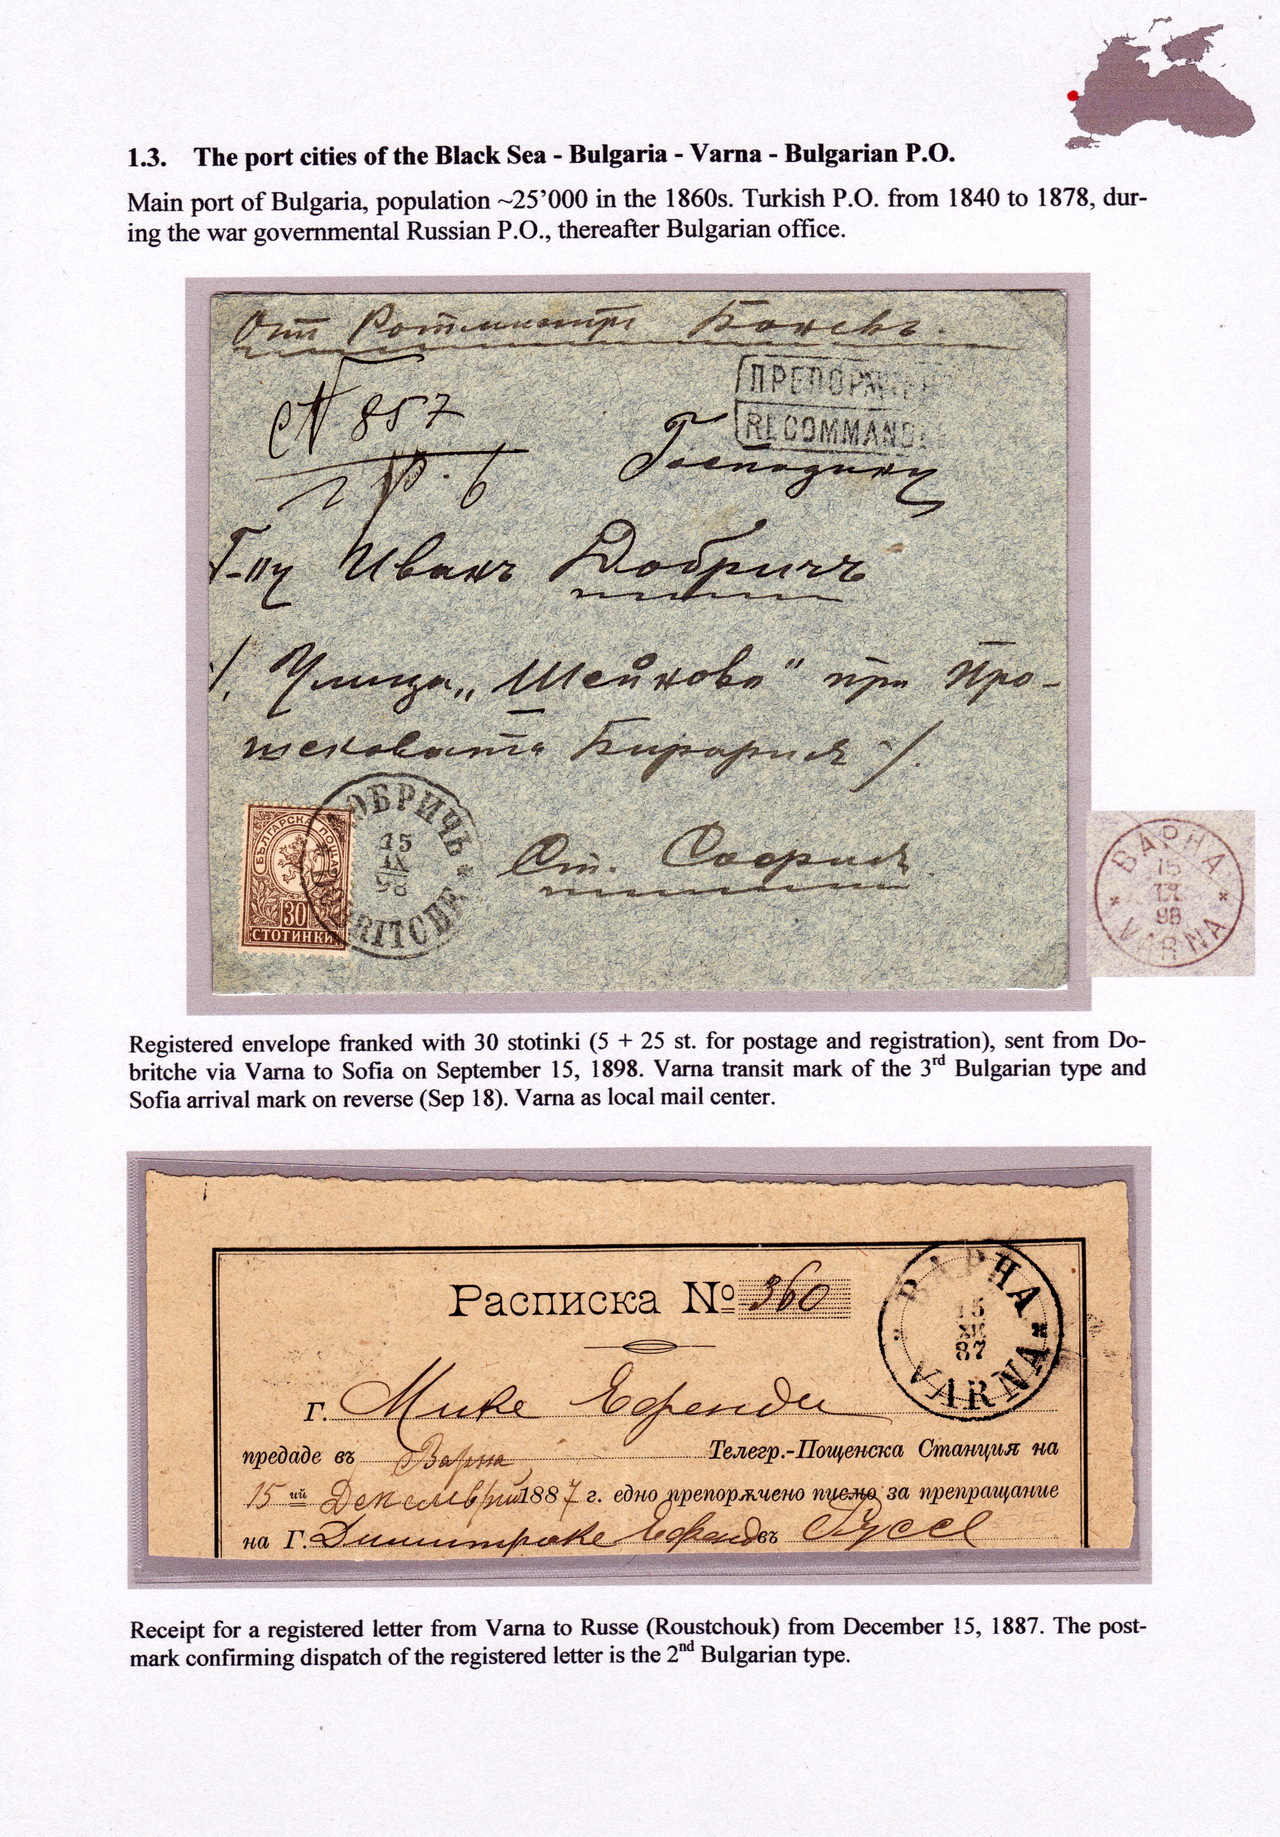 1.3. The port cities of the Black Sea - Bulgaria - Varna - Bulgarian P.O.
Main port of Bulgaria, population ~25’000 in the 1860s. Turkish P.O. from 1840 to 1878, dur-
ing the war governmental Russian P.O., thereafter Bulgarian office.
От
ПРЕПОРА
RECOMMAND
№ 857
Господину
Г-ну Иванъ Добричъ
/. Улица „Шейново" при Про-
/.
От. София
ОБРИЧЬ
15
IX
98
RITCHE
БЪЛГАРСКА ПОЩА
30
СТОТИНКИ
ВАРНА
15
IX
98
VARNA
Registered envelope franked with 30 stotinki (5 + 25 st. for postage and registration), sent from Do-
britche via Varna to Sofia on September 15, 1898. Varna transit mark of the 3rd Bulgarian type and
Sofia arrival mark on reverse (Sep 18). Varna as local mail center.
Расписка № 360
ВАРНА
15
XII
87
VARNA
Г. Мике Ефенди
предаде въ Варна Телегр.-Пощенска Станция на
15 ий Декемврий 1887 г. едно препорѫчено писмо за препращание
на Г. Димитраке Ефенд въ Руссе
Receipt for a registered letter from Varna to Russe (Roustchouk) from December 15, 1887. The post-
mark confirming dispatch of the registered letter is the 2nd Bulgarian type.